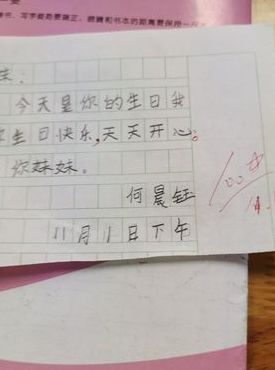 书、写字姿势要端正，眼睛和书本的距离要保持一
妹：
今天是你的生日我
生日快乐,天天开心。
你妹妹。
何晨钰
11月1日下午
100